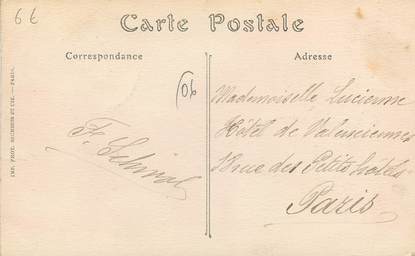 6€
Carte Postale
Correspondance
Adresse
06
Mademoiselle Lucienne
Hôtel de Valenciennes
rue des Petits hôtels
Paris
F.
IMP. PHOT. ET CIE. — PARIS.